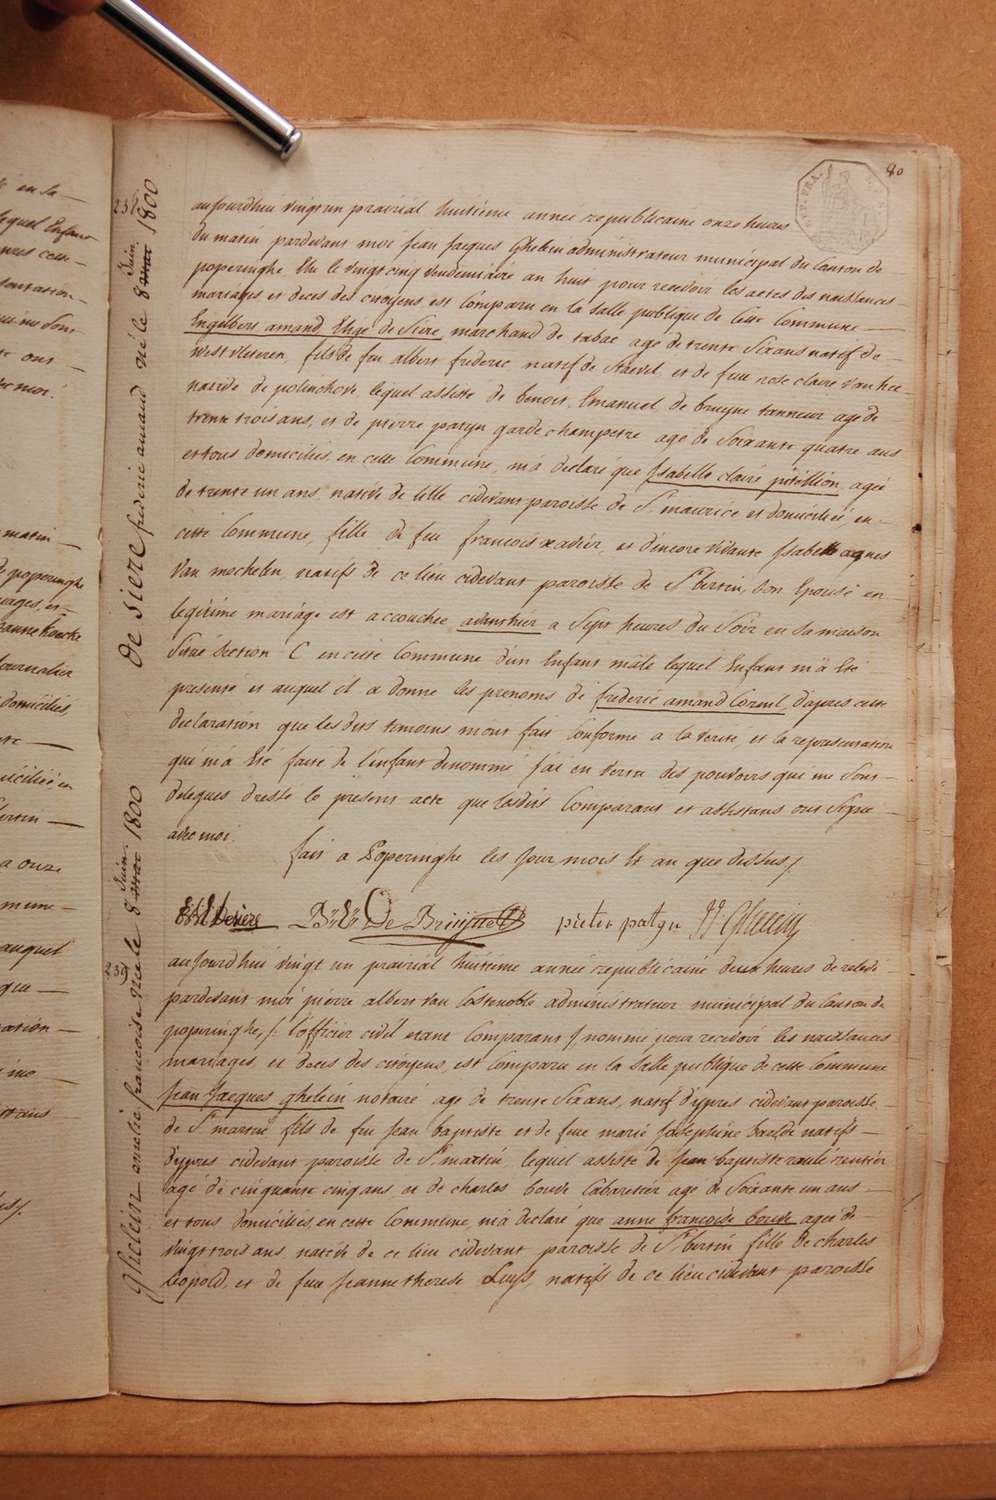 80
aujourdhui vingt un prairial huitieme année republicaine onze heures
du matin pardevant moi Jean Jacques Ghelein administrateur municipal du Canton de
poperinghe Elu le vingt cinq vendemiaire an huit pour recevoir les actes des naissances
mariages et deces des citoyens est Comparu en la salle publique de cette Commune
Engelbert amand Elige de Siere marchand de tabac agé de trente six ans natif de
westvleteren, fils de feu albert frederic natif de Stavel et de feue rose claire van hee
native de polinchove, lequel assisté de benoit Emanuel de bruyne tanneur agé de
trente trois ans, et de pierre patyn garde champetre agé de Soixante quatre ans
et tous domiciliés en cette Commune, m'a declaré que Isabelle claire pitillion, agée
de trente un ans, native de lille cidevant paroisse de St maurice et domiciliée en
cette Commune, fille de feu francois xavier, et d'encore vivante Isabelle agnes
Van mechelen, natifs de ce lieu cidevant paroisse de St bertin, son Epouse en
legitime mariage est accouchée avanthier a Sept heures du Soir en sa maison
Située Section C en cette Commune d'un Enfant mâle lequel Enfant m'a Eté
presenté et auquel il a donné les prenoms de frederic amand Corneil, d'apres cette
declaration que les dits temoins m'ont fait Conforme a la verité, et la representation
qui m'a Eté faite de l'enfant denommé j'ai en vertu des pouvoirs qui me sont
delegués dressé le present acte que lesdits Comparant et assistans ont Signé
avec moi.
fait a Poperinghe les Jour mois Et an que dessus /.
Desiere De Bruyne pieter patyn JJ Ghelein
aujourdhui vingt un prairial huitieme année republicaine deux heures de relevé
pardevant moi pierre albert van Costenoble administrateur municipal du Canton de
poperinghe, /: l'officier civil etant Comparant :/ nommé pour recevoir les naissances
mariages et deces des citoyens, est Comparu en la Salle publique de cette Commune
Jean Jacques ghelein notaire agé de trente Six ans, natif d'ypres cidevant paroisse
de St martin fils de feu Jean baptiste et de feue marie Josephine baelde natifs
d'ypres cidevant paroisse de St martin, lequel assisté de Jean baptiste raulé rentier
agé de cinquante cinq ans et de charles boude Cabaretier agé de Soixante un ans
et tous domiciliés, en cette Commune, m'a declaré que anne françoise boude agée de
vingt trois ans, native de ce lieu cidevant paroisse de St bertin fille de charles
leopold, et de feue Jeanne therese Luys, natifs de ce lieu cidevant paroisse
de siere frederic amand né le 8 Juin 1800
ghelein amelie francoise née le 8 Juin 1800